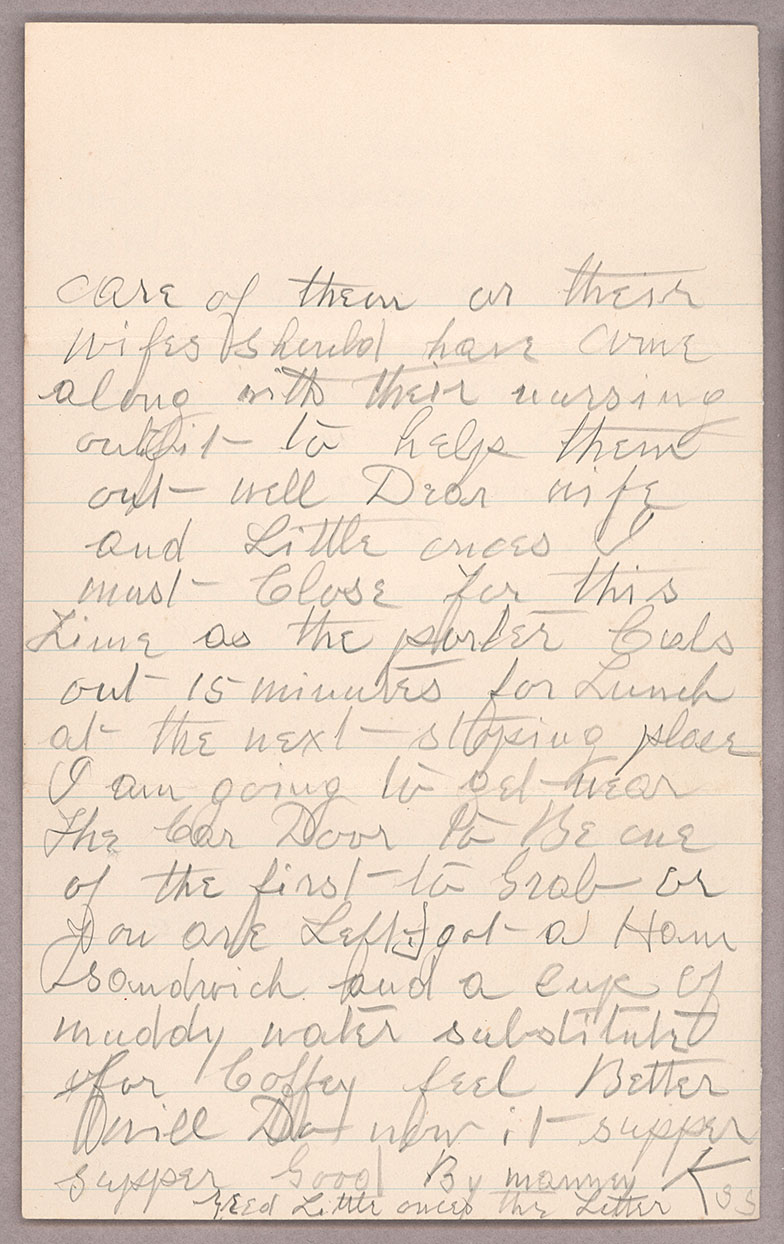 care of them or their
wifes should have come
along with their nursing
outfit to help them
out well Dear wife
and Little onces I
must Close for this
time as the porter Cals
out 15 minutes for Lunch
at the next stoping place
I am going to get near
the Car Door to Be one
of the first to Grab or
you are Left got a Ham
sandwich and a cup of
muddy water substitute
for Coffey feel Better
will Do now it supper
supper Good By manney K
reed Little onces the Letter